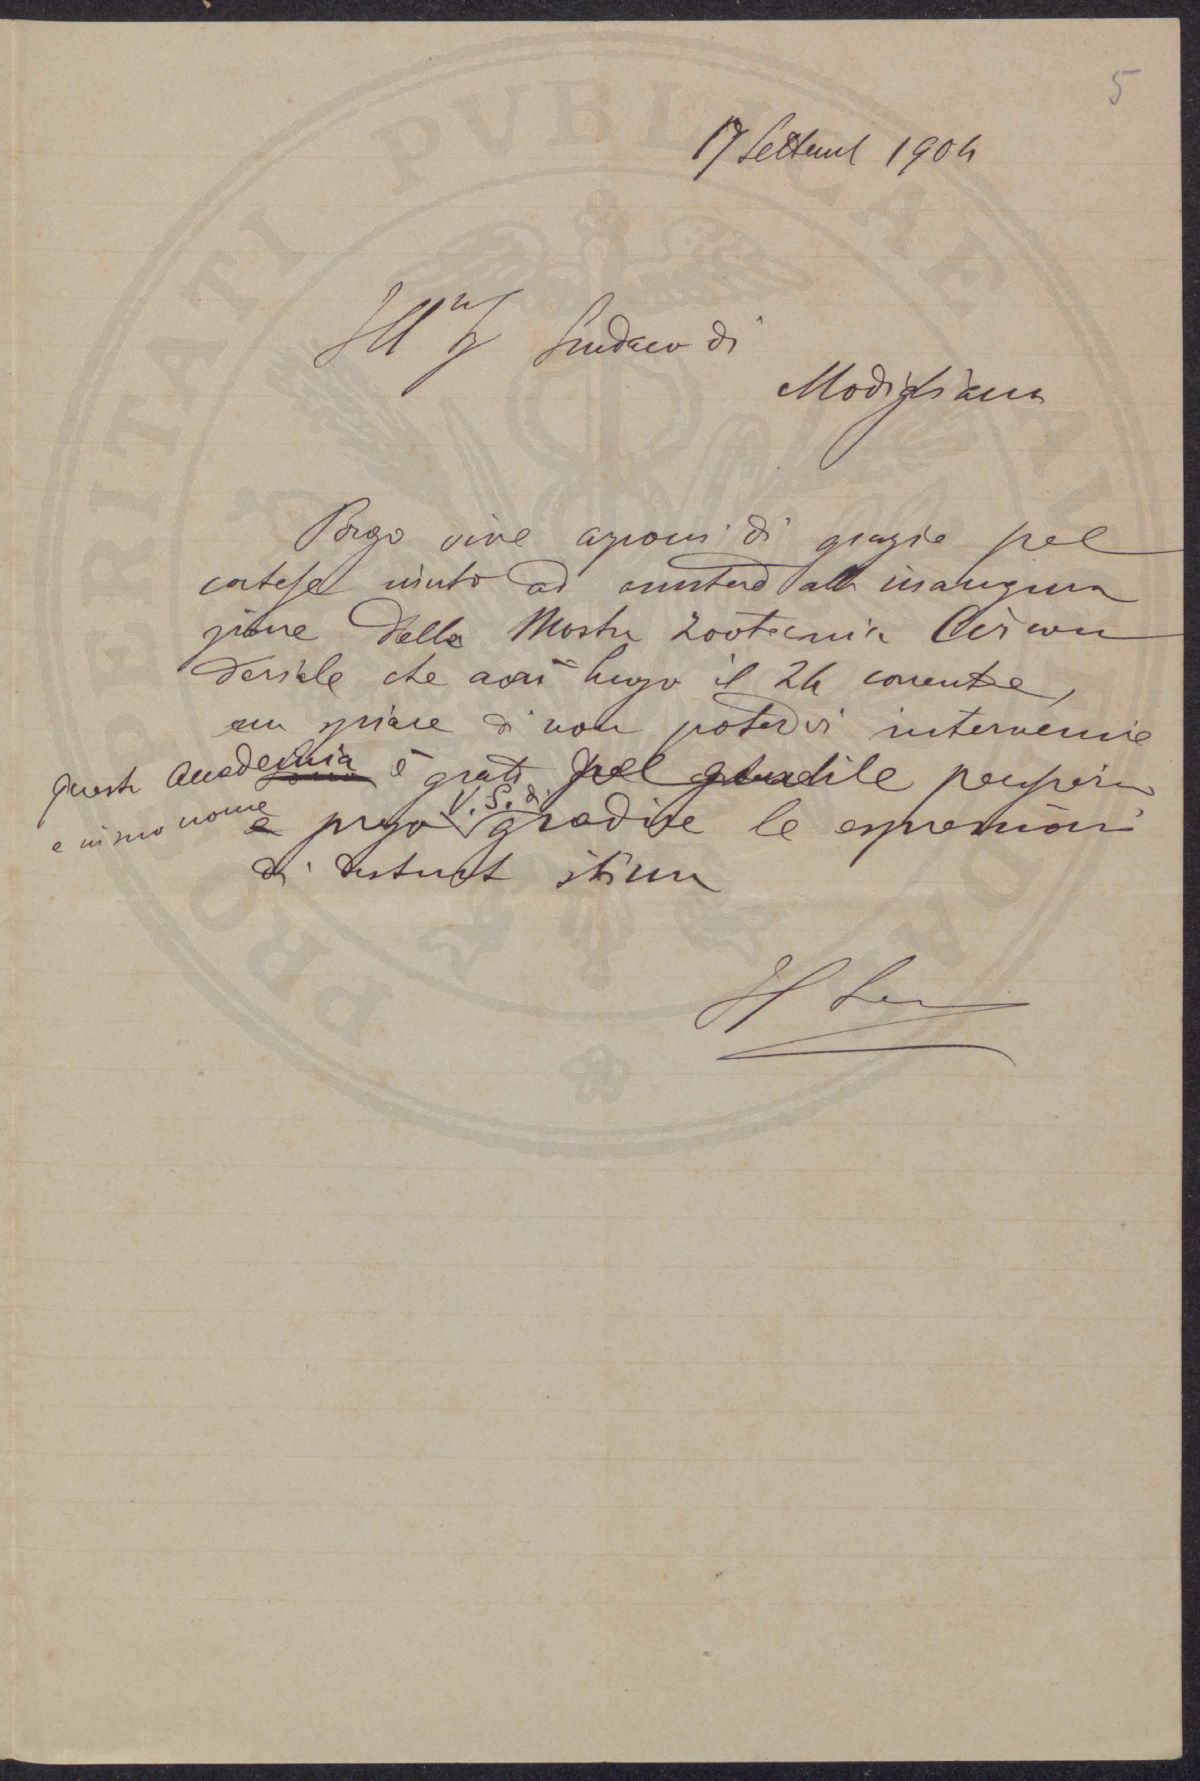 5
17 Settemb 1904
Ill Sindaco di
Modigliana
Porgo vive azioni di grazie pel
cortese invito ad assistere alla inaugura
zione della Mostra Zootecnica Circon
dariale che avrà luogo il 24 corrente,
mi spiace di non potervi intervenire
Questa Accademia è grata pel gentile pensiero
e in suo nome prego V. S. di gradire le espressioni
di distinta stima
PROSPERITATI PUBLICAE